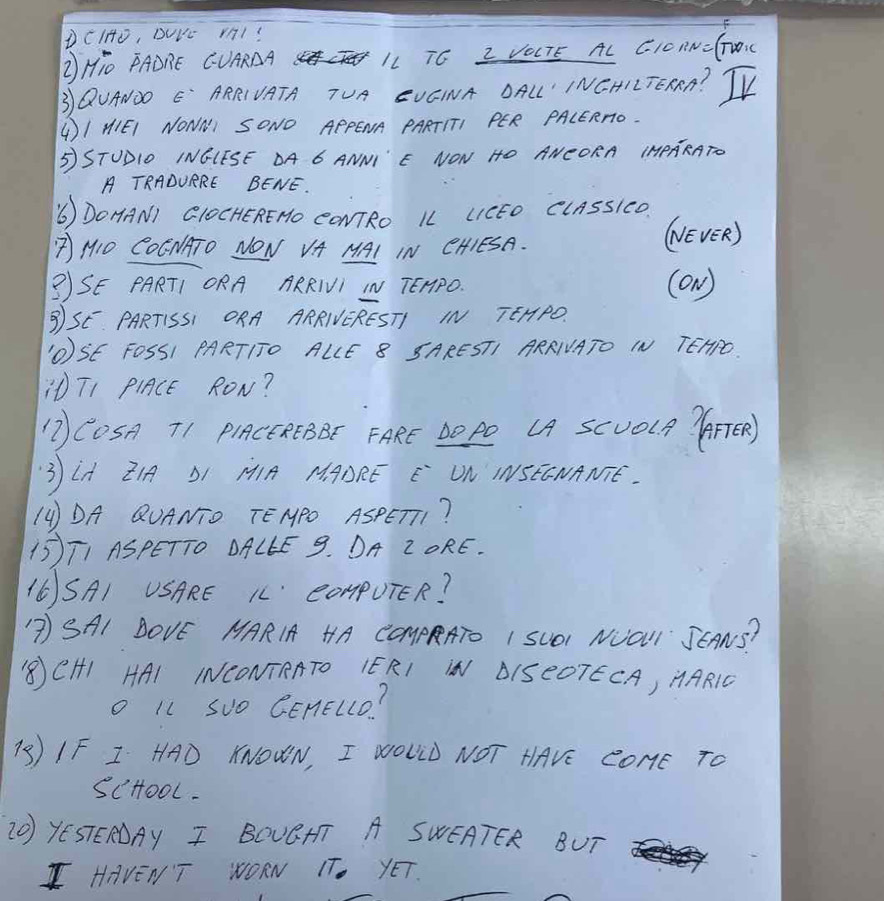 1) CIAO, DOVE VAI?
2) MIO PADRE GUARDA IL TG 2 VOLTE AL GIORNO (TWIC
3) QUANDO E' ARRIVATA TUA CUGINA DALL'INGHILTERRA? IV
4) I MIEI NONNI SONO APPENA PARTITI PER PALERMO.
5) STUDIO INGLESE DA 6 ANNI E NON HO ANCORA IMPARATO
A TRADURRE BENE.
6) DOMANI GIOCHEREMO CONTRO IL LICEO CLASSICO.
7) MIO COGNATO NON VA MAI IN CHIESA. (NEVER)
8) SE PARTI ORA ARRIVI IN TEMPO. (ON)
9) SE PARTISSI ORA ARRIVERESTI IN TEMPO.
10) SE FOSSI PARTITO ALLE 8 SARESTI ARRIVATO IN TEMPO.
11) TI PIACE RON?
12) COSA TI PIACEREBBE FARE DOPO LA SCUOLA? (AFTER)
13) LA ZIA DI MIA MADRE E' UN'INSEGNANTE.
14) DA QUANTO TEMPO ASPETTI?
15) TI ASPETTO DALLE 9. DA 2 ORE.
16) SAI USARE IL COMPUTER?
17) SAI DOVE MARIA HA COMPRATO I SUOI NUOVI JEANS?
18) CHI HAI INCONTRATO IERI IN DISCOTECA, MARIO
O IL SUO GEMELLO?
19) IF I HAD KNOWN, I WOULD NOT HAVE COME TO
SCHOOL.
20) YESTERDAY I BOUGHT A SWEATER BUT
I HAVEN'T WORN IT. YET.